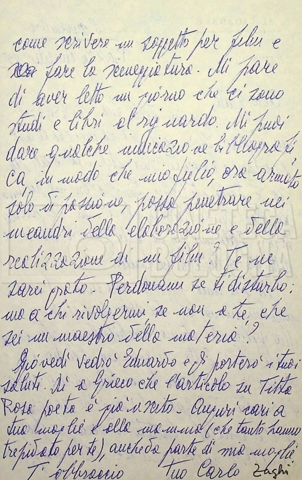 come scrivere un soggetto per film e
fare la sceneggiatura. Mi pare
di aver letto un giorno che ci sono
studi e libri al riguardo. Mi puoi
dare qualche indicazione bibliografi
ca, in modo che mio figlio, ora armato
solo di passione, possa penetrare nei
meandri della elaborazione e della
realizzazione di un film? Te ne
sarei grato. Perdonami se ti disturbo:
ma a chi rivolgermi se non a te, che
sei un maestro della materia?
Giovedì vedrò Eduardo e gli porterò i tuoi
saluti. Dì a Grieco che l'articolo su Titta
Rosa poeta è già uscito. Auguri cari a
tua moglie e alla mamma (che tanto hanno
trepidato per te), anche da parte di mia moglie
T'abbraccio tuo Carlo Zaghi